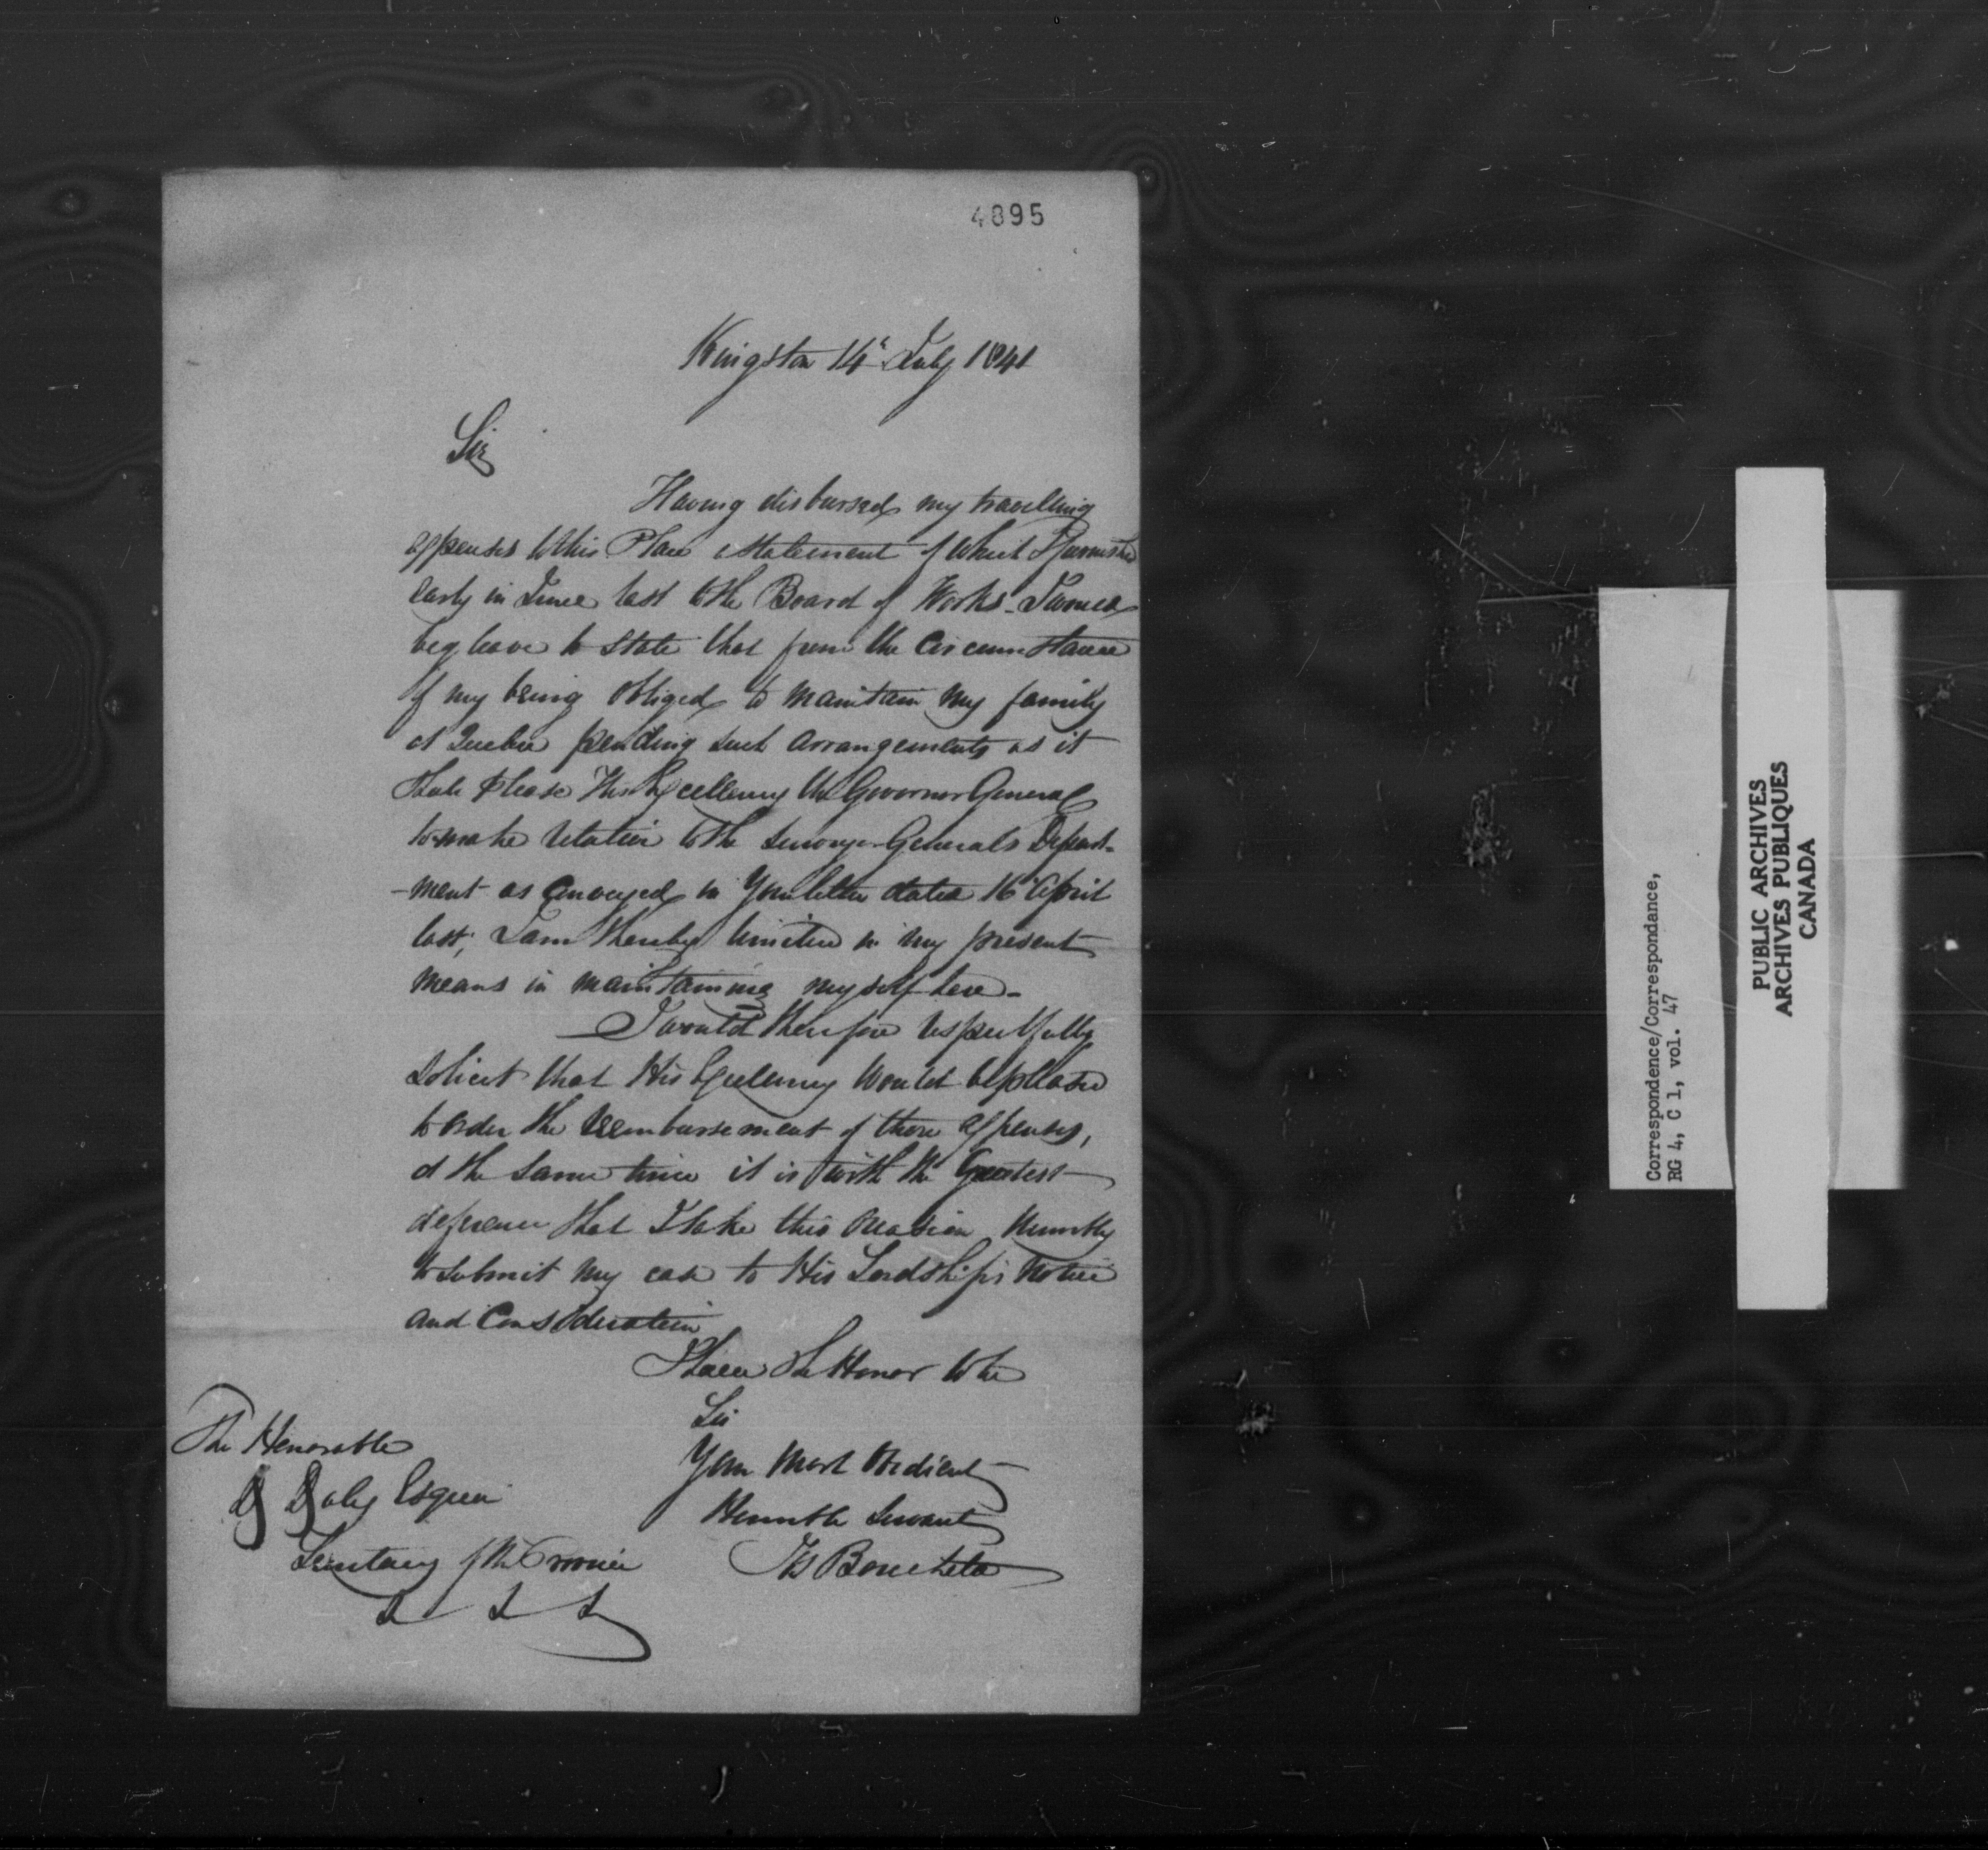 4895
Kingston 14th July 1841
Sir
Having disbursed my travelling
expenses to this Place a statement of which I furnished
early in June last to the Board of Works. I would
beg leave to state that from the circumstance
of my being obliged to maintain my family
at Quebec pending such arrangements as it
shall please His Excellency the Governor General
to make relative to the Surveyor General's Depart-
-ment as conveyed in Your letter dated 16 April
last; I am thereby limited in my present
means in maintaining myself here.
I would therefore respectfully
solicit that His Excellency would be pleased
to order the reembursement of those expenses,
at the same time it is with the Greatest
deference that I take this occasion humbly
to submit my case to His Lordship's notice
and Consideration
I have the Honor to be
Sir
Your Most Obedient
Humble Servant
Js Bouchette
The Honorable
D Daly Esquire
Secretary of the Province
& & &
Correspondence/Correspondance,
RG 4, C 1, vol. 47
PUBLIC ARCHIVES
ARCHIVES PUBLIQUES
CANADA